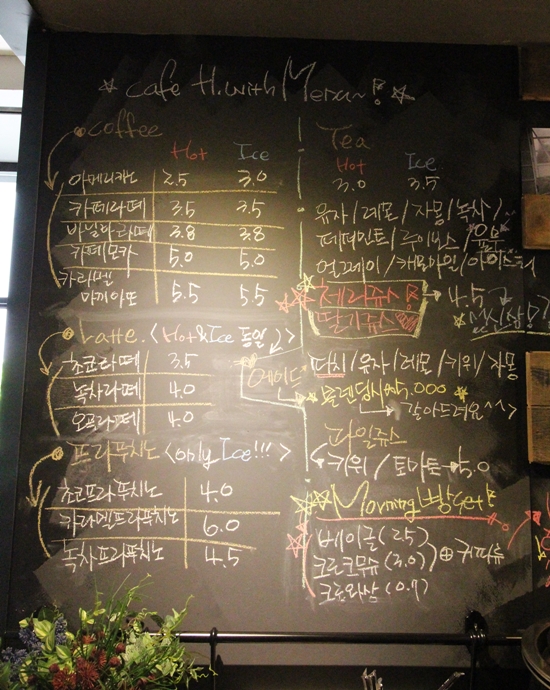 ☆ Cafe H.with Menu~! ☆
coffee
Hot Ice
아메리카노 2.5 3.0
카페라떼 3.5 3.5
바닐라라떼 3.8 3.8
카페모카 5.0 5.0
카라멜
마키아또 5.5 5.5
Latte. <Hot&Ice 동일>
초코라떼 3.5
녹차라떼 4.0
오곡라떼 4.0
프라푸치노 <only Ice!!!>
초코프라푸치노 4.0
카라멜프라푸치노 6.0
녹차프라푸치노 4.5
Tea
Hot Ice
3.0 3.5
유자/레몬/자몽/녹차/
페퍼민트/루이보스/
얼그레이/캐모마일/아이스티
체리쥬스! → 4.5
딸기쥬스 신상!
에이드
유자/레몬/키위/자몽
5.000
갈아드려요^^>
과일쥬스
키위/토마토→5.0
Morning빵set!
베이글(2.5)
크로크무슈(3.0) ⊕커피류
크로와상(0.7)